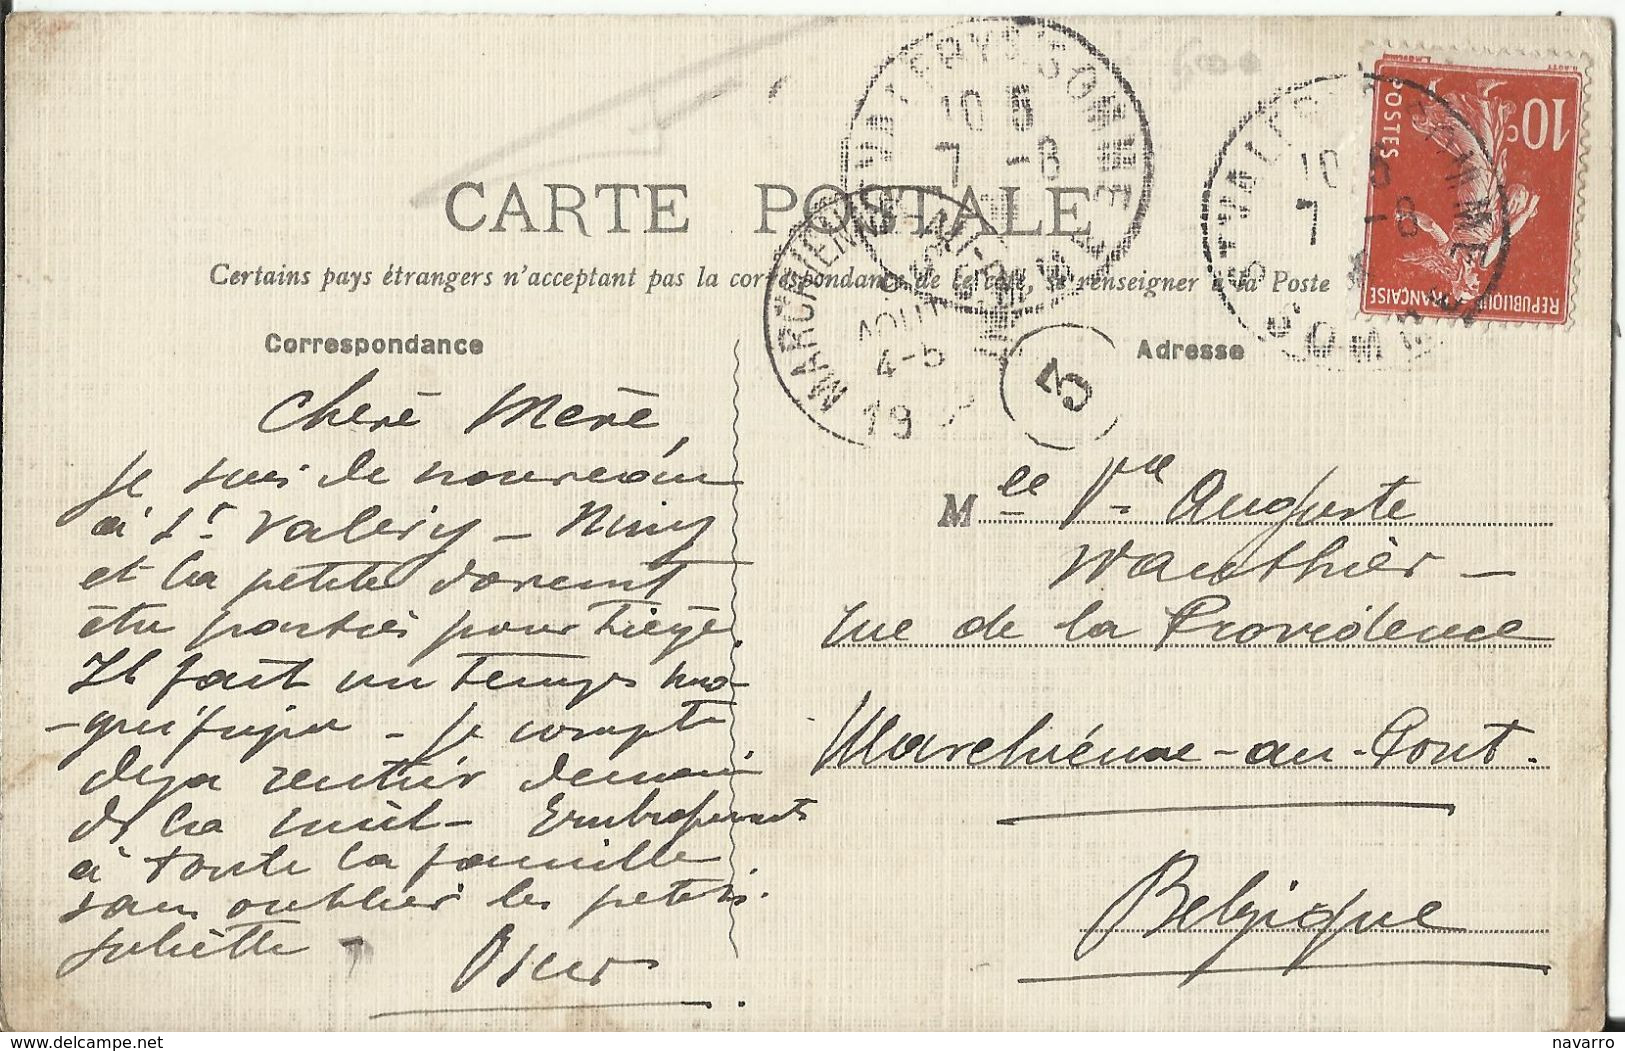 CARTE POSTALE
Certains pays étrangers n'acceptant pas la correspondance de ce côté, se renseigner à la Poste
Correspondance
Adresse
Chère Mère,
je suis de nouveau
à St Valéry - Niny
et la petite doivent
être parties pour Liège.
Il fait un temps ma-
-gnifique - je compte
déjà rentrer demain
ds la nuit - Embrassements
à toute la famille
sans oublier les petits.
Juliette -
Oscar
Mlle Vve Auguste
Wauthier -
rue de la Providence
Marchienne-au-Pont.
Belgique
10c
POSTES
REPUBLIQUE FRANÇAISE
ST VALERY S SOMME
10 5
7 -8
SOMME
MARCHIENNE-AU-PONT
AOUT
4-5
19
3
www.delcampe.net
navarro